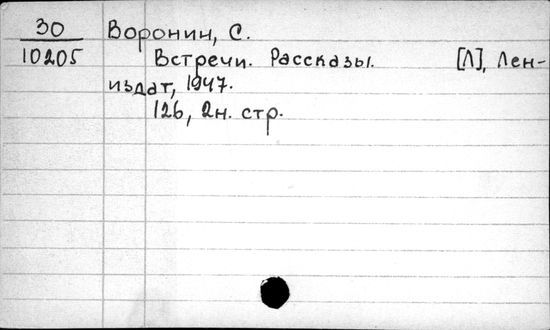 30
10205
Воронин, С.
Встречи. Рассказы. [Л], Лен-
издат, 1947.
126, 2н. стр.